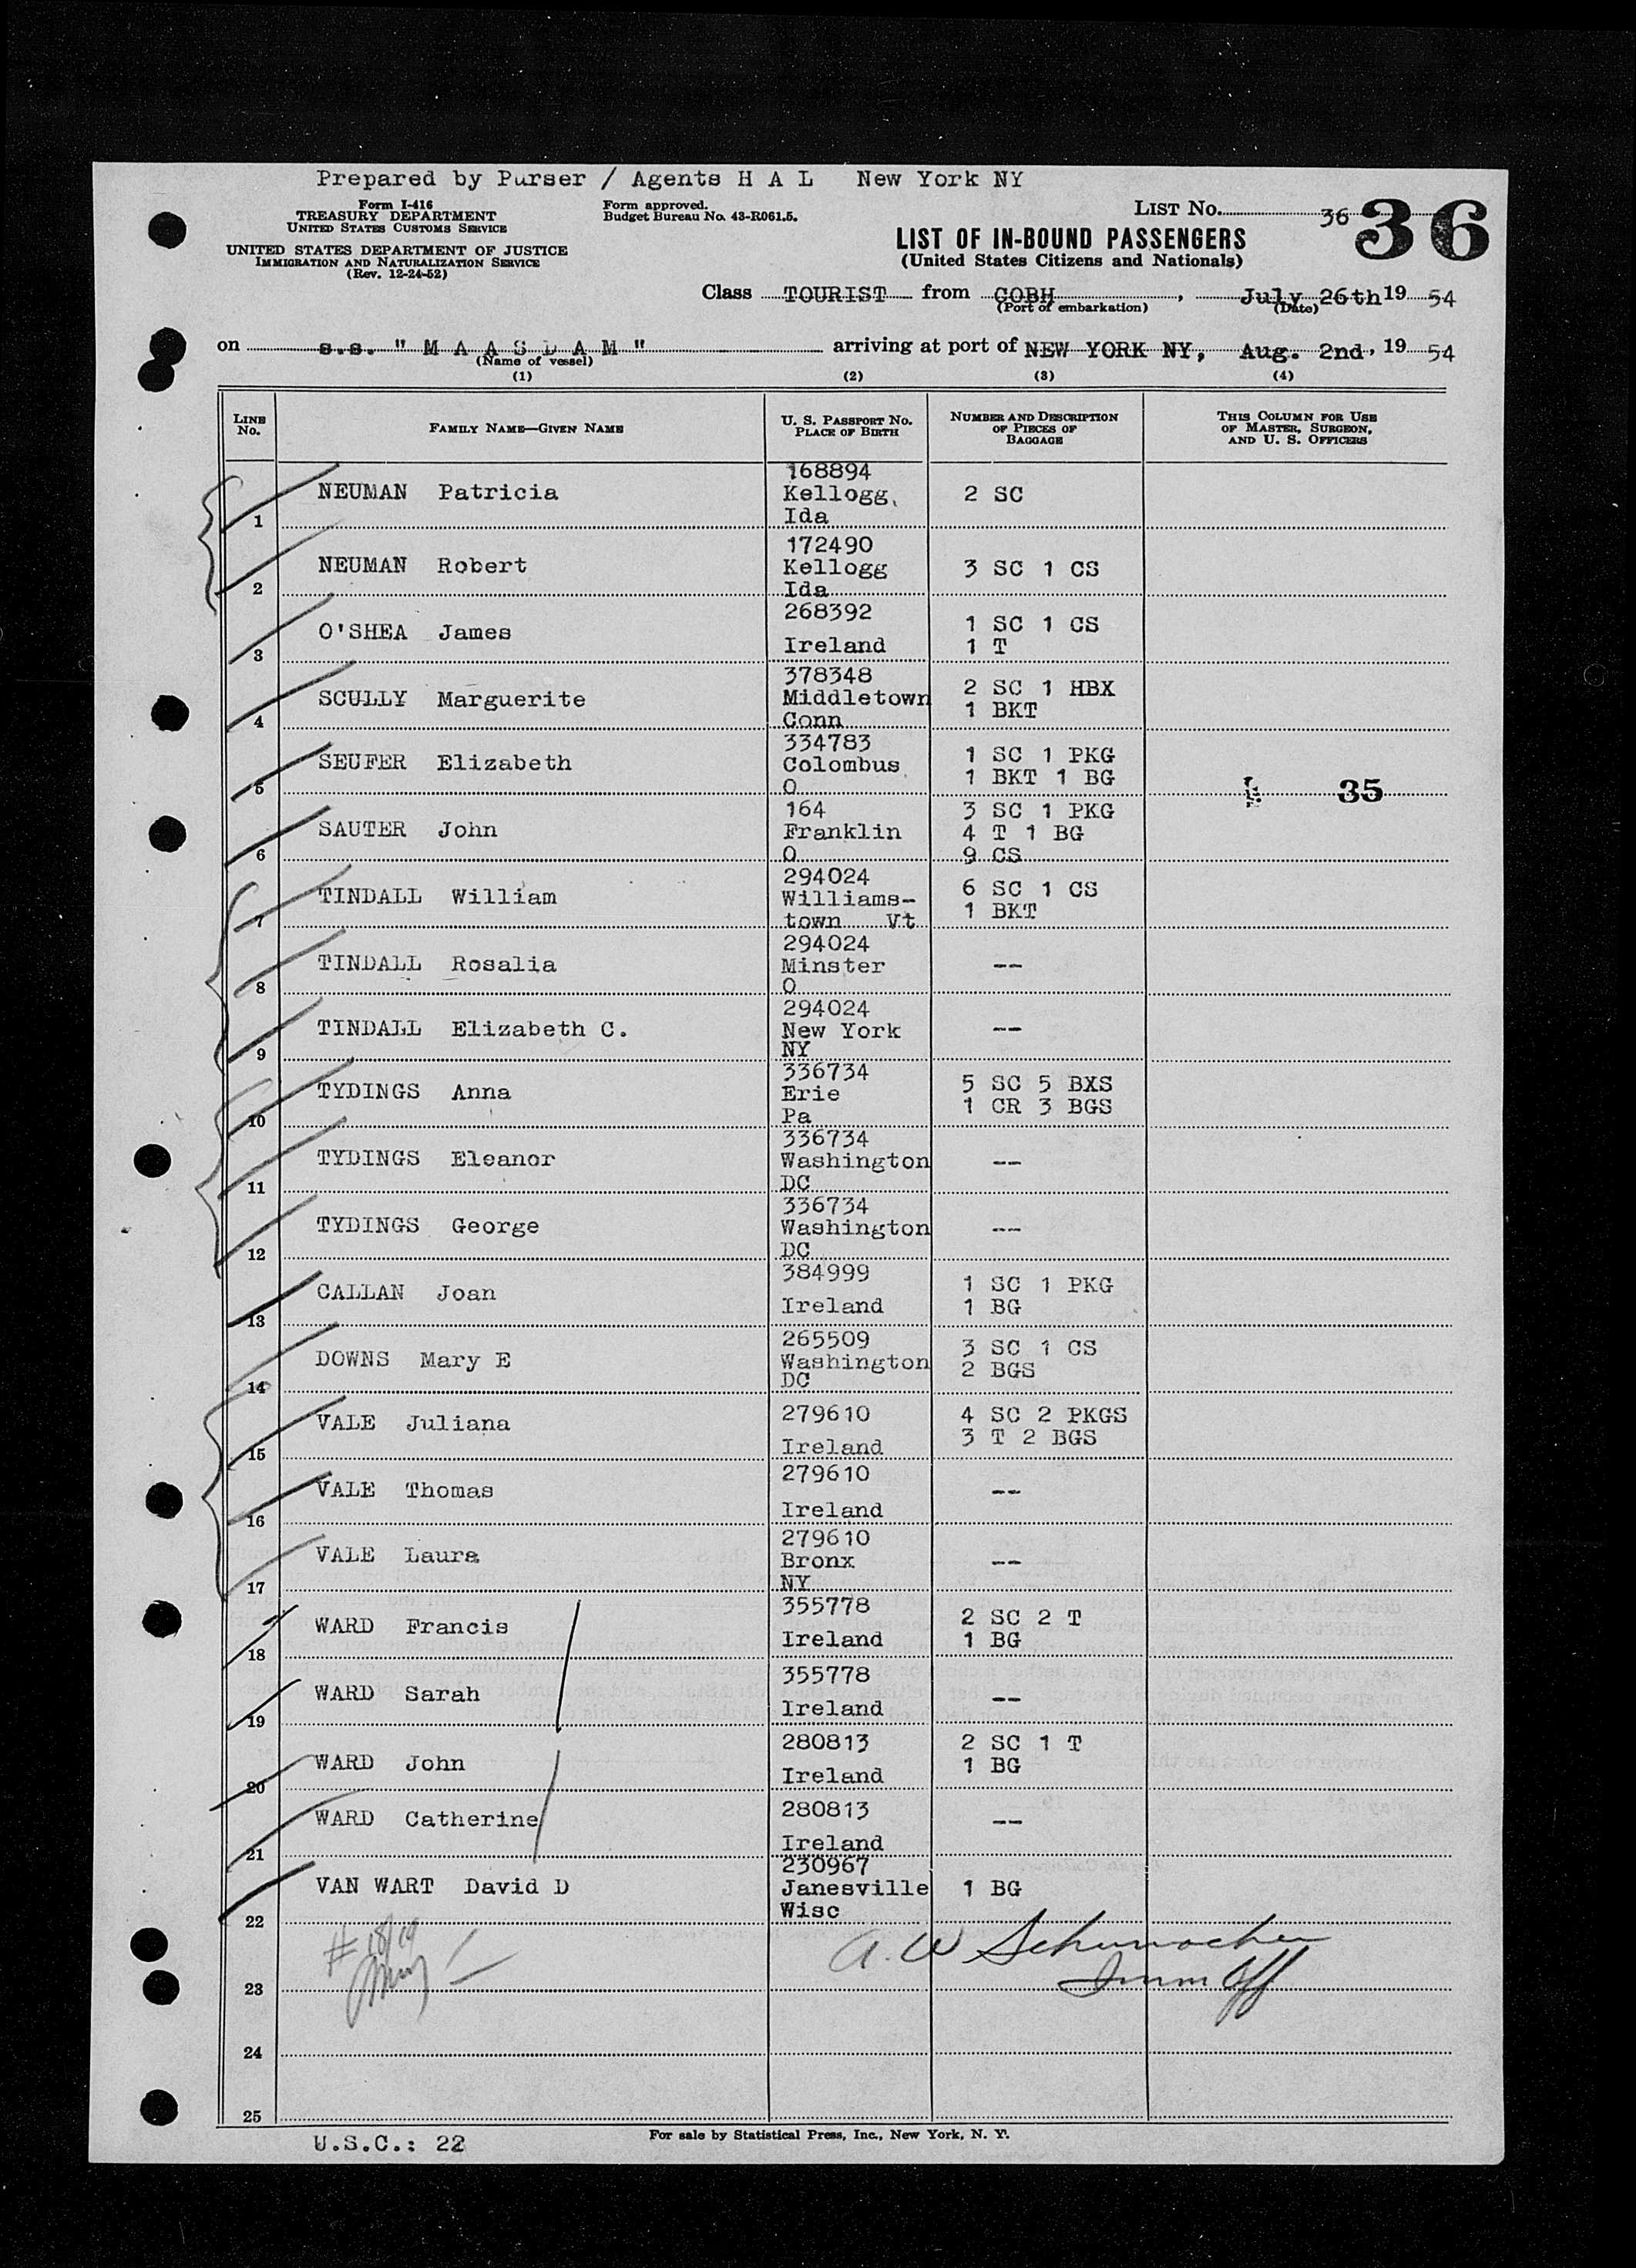 Prepared by Purser / Agents H A L New York NY
Form I-416
TREASURY DEPARTMENT
UNITED STATES CUSTOMS SERVICE
UNITED STATES DEPARTMENT OF JUSTICE
IMMIGRATION AND NATURALIZATION SERVICE
(Rev. 12-24-52)
Form approved.
Budget Bureau No. 43-R061.5.
LIST No. 36 36
LIST OF IN-BOUND PASSENGERS
(United States Citizens and Nationals)
Class TOURIST from COBH, July 26th 19 54
(Port of embarkation) (Date)
on s.s. " M A A S D A M " arriving at port of NEW YORK NY, Aug. 2nd, 19 54
(Name of vessel)
(1) (2) (3) (4)
LINE No. FAMILY NAME—GIVEN NAME U. S. PASSPORT No. PLACE OF BIRTH NUMBER AND DESCRIPTION OF PIECES OF BAGGAGE THIS COLUMN FOR USE OF MASTER, SURGEON, AND U. S. OFFICERS
1 NEUMAN Patricia 168894 Kellogg, Ida 2 SC
2 NEUMAN Robert 172490 Kellogg Ida 3 SC 1 CS
3 O'SHEA James 268392 Ireland 1 SC 1 CS 1 T
4 SCULLY Marguerite 378348 Middletown Conn 2 SC 1 HBX 1 BKT
5 SEUFER Elizabeth 334783 Colombus O 1 SC 1 PKG 1 BKT 1 BG 35
6 SAUTER John 164 Franklin O 3 SC 1 PKG 4 T 1 BG 9 CS
7 TINDALL William 294024 Williams-town Vt 6 SC 1 CS 1 BKT
8 TINDALL Rosalia 294024 Minster O --
9 TINDALL Elizabeth C. 294024 New York NY --
10 TYDINGS Anna 336734 Erie Pa 5 SC 5 BXS 1 CR 3 BGS
11 TYDINGS Eleanor 336734 Washington DC --
12 TYDINGS George 336734 Washington DC --
13 CALLAN Joan 384999 Ireland 1 SC 1 PKG 1 BG
14 DOWNS Mary E 265509 Washington DC 3 SC 1 CS 2 BGS
15 VALE Juliana 279610 Ireland 4 SC 2 PKGS 3 T 2 BGS
16 VALE Thomas 279610 Ireland --
17 VALE Laura 279610 Bronx NY --
18 WARD Francis 355778 Ireland 2 SC 2 T 1 BG
19 WARD Sarah 355778 Ireland --
20 WARD John 280813 Ireland 2 SC 1 T 1 BG
21 WARD Catherine 280813 Ireland --
22 VAN WART David D 230967 Janesville Wisc 1 BG
# 18/19
A. W Schumacher
Imm Off
23
24
25
U.S.C.: 22
For sale by Statistical Press, Inc., New York, N. Y.